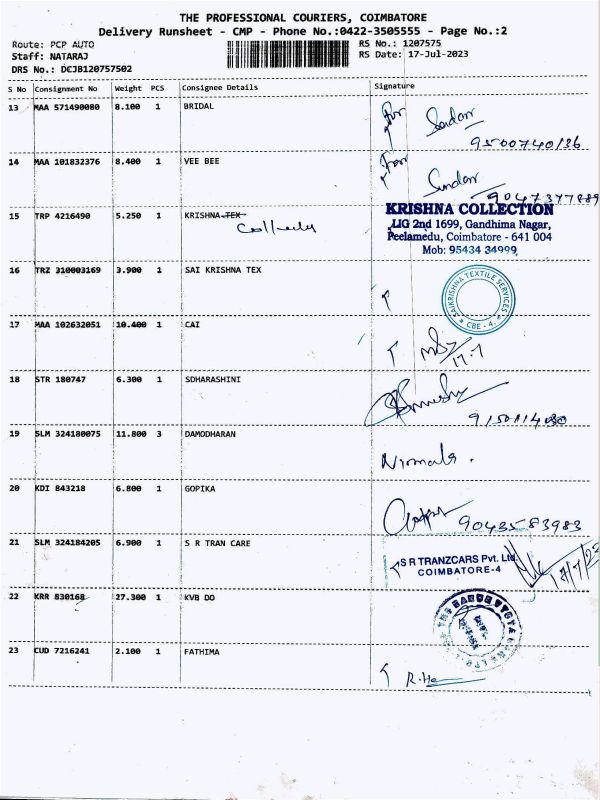 THE PROFESSIONAL COURIERS, COIMBATORE
Delivery Runsheet - CMP - Phone No.:0422-3505555 - Page No.:2
Route: PCP AUTO RS No.: 1207575
Staff: NATARAJ RS Date: 17-Jul-2023
DRS No.: DCJB120757502
S No Consignment No Weight PCS Consignee Details Signature
13 MAA 571490080 8.100 1 BRIDAL
For Sundar
9500740136
14 MAA 101832376 8.400 1 VEE BEE
For Sundar
9047377889
15 TRP 4216490 5.250 1 KRISHNA TEX
KRISHNA COLLECTION
LIG 2nd 1699, Gandhima Nagar,
Peelamedu, Coimbatore - 641 004
Mob: 95434 34999
16 TRZ 310003169 3.900 1 SAI KRISHNA TEX
SAIKRISHNA TEXTILE SERVICES
CBE - 4.
17 MAA 102632051 10.400 1 CAI
17.7
18 STR 180747 6.300 1 SDHARASHINI
19 SLM 324180075 11.800 3 DAMODHARAN
Nirmala.
20 KDI 843218 6.800 1 GOPIKA
9043583983
21 SLM 324184205 6.900 1 S R TRAN CARE
S R TRANZCARS Pvt. Ltd.
COIMBATORE-4
17/7/23
22 KRR 830168 27.300 1 KVB DO
23 CUD 7216241 2.100 1 FATHIMA